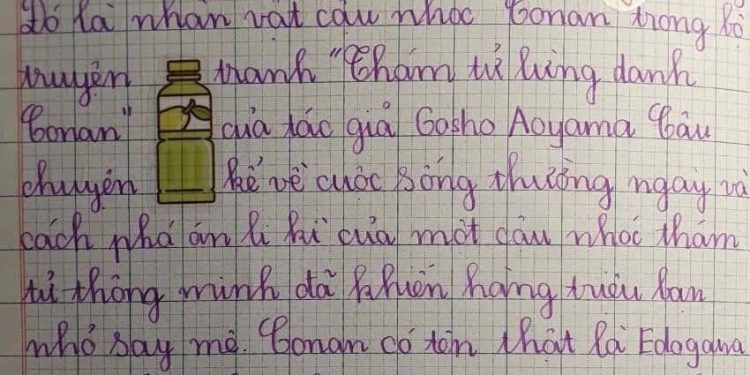 Đó là nhân vật cậu nhóc Conan trong bộ
truyện tranh "Thám tử lừng danh
Conan" của tác giả Gosho Aoyama Câu
chuyện kể về cuộc sống thường ngày và
cách phá án li kì của một cậu nhóc thám
tử thông minh đã khiến hàng triệu bạn
nhỏ say mê. Conan có tên thật là Edogawa